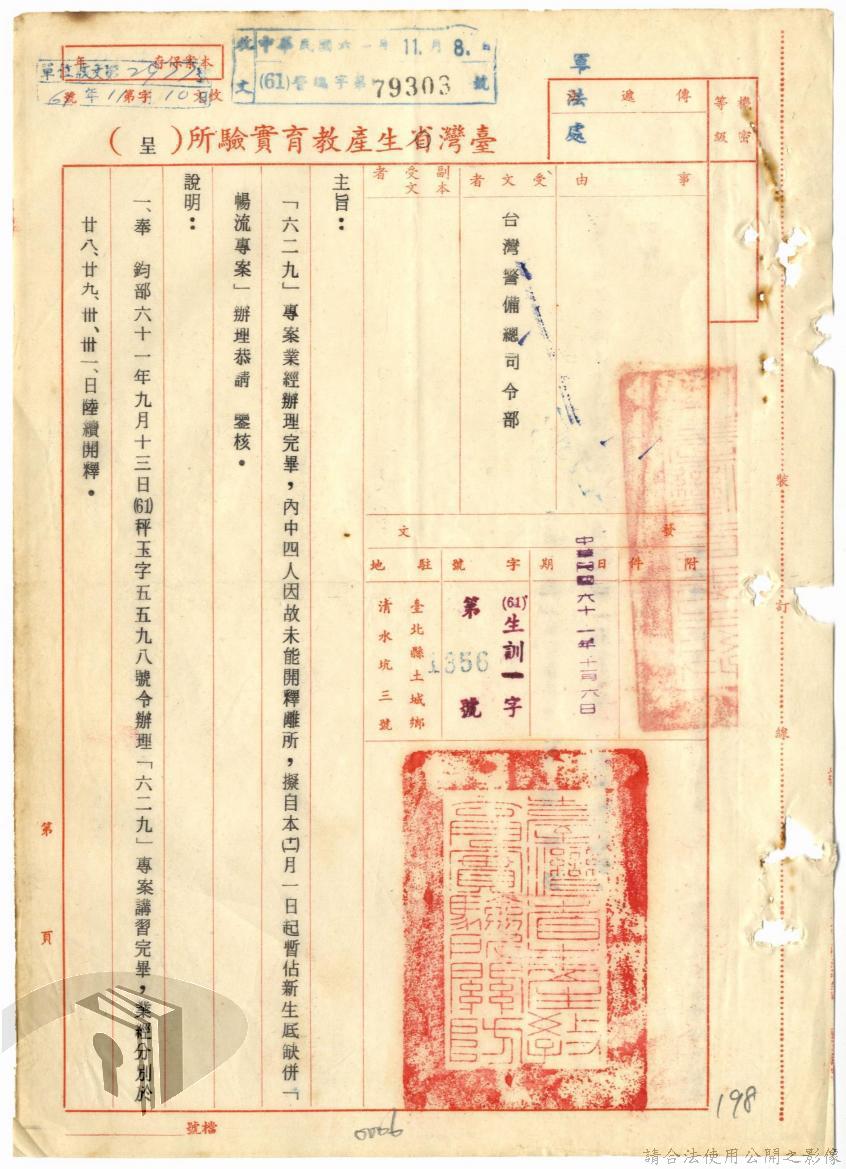 臺灣省生產教育實驗所（呈）
軍法處
中華民國六一年11月8日
收文
(61)警編字第79303號
本案保存 年
傳遞
機密等級
事由
受文者
台灣警備總司令部
副本受文者
發文
附件
日期
中華民國六十一年十一月六日
字號
(61)生訓一字
第1356號
駐地
臺北縣土城鄉
清水坑三號
主旨：
「六二九」專案業經辦理完畢，內中四人因故未能開釋離所，擬自本(二)月一日起暫佔新生底缺併「
暢流專案」辦理恭請　鑒核。
說明：
一、奉　鈞部六十一年九月十三日(61)秤玉字五五九八號令辦理「六二九」專案講習完畢，業經分別於
廿八、廿九、卅、卅一、日陸續開釋。
裝
訂
線
第 頁
檔號
198
請合法使用公開之影像